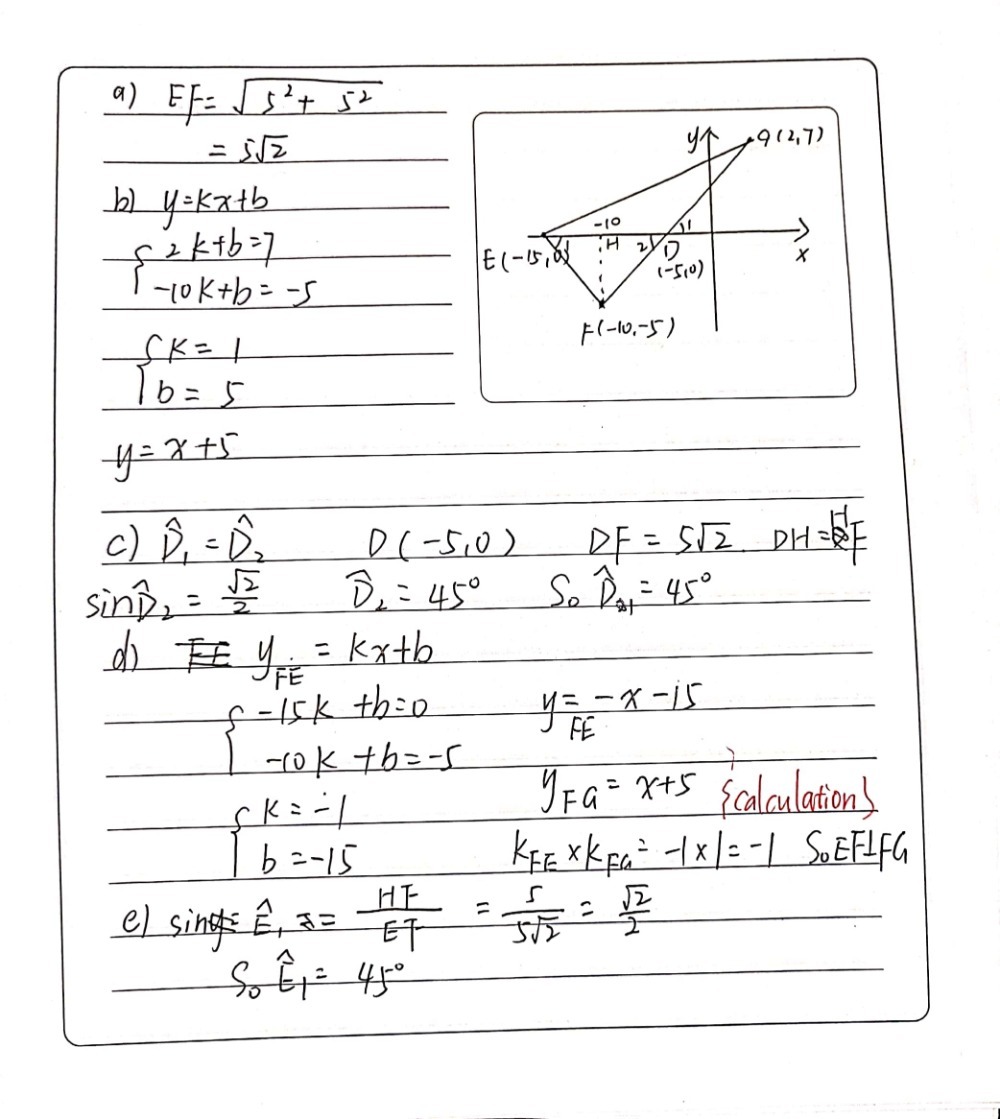 a) EF = √(5² + 5²)
= 5√2
b) y=kx+b
{ 2k+b=7
-10k+b=-5
{ k = 1
b = 5
y = x+5
y
G(2,7)
-10
1
E(-15,0)
H
2
D
x
(-5,0)
F(-10,-5)
c) D̂₁ = D̂₂ D(-5,0) DF = 5√2 DH=HF
sinD̂₂ = √2/2 D̂₂ = 45° So D̂₁ = 45°
d) y_FE = kx+b
{ -15k +b=0 y_FE = -x-15
-10k +b=-5
y_FG = x+5 {calculation}
{ k = -1
b = -15 k_FE × k_FG = -1×1 = -1 So EF⊥FG
e) sin Ê₁ = HF/EF = 5/5√2 = √2/2
So Ê₁ = 45°